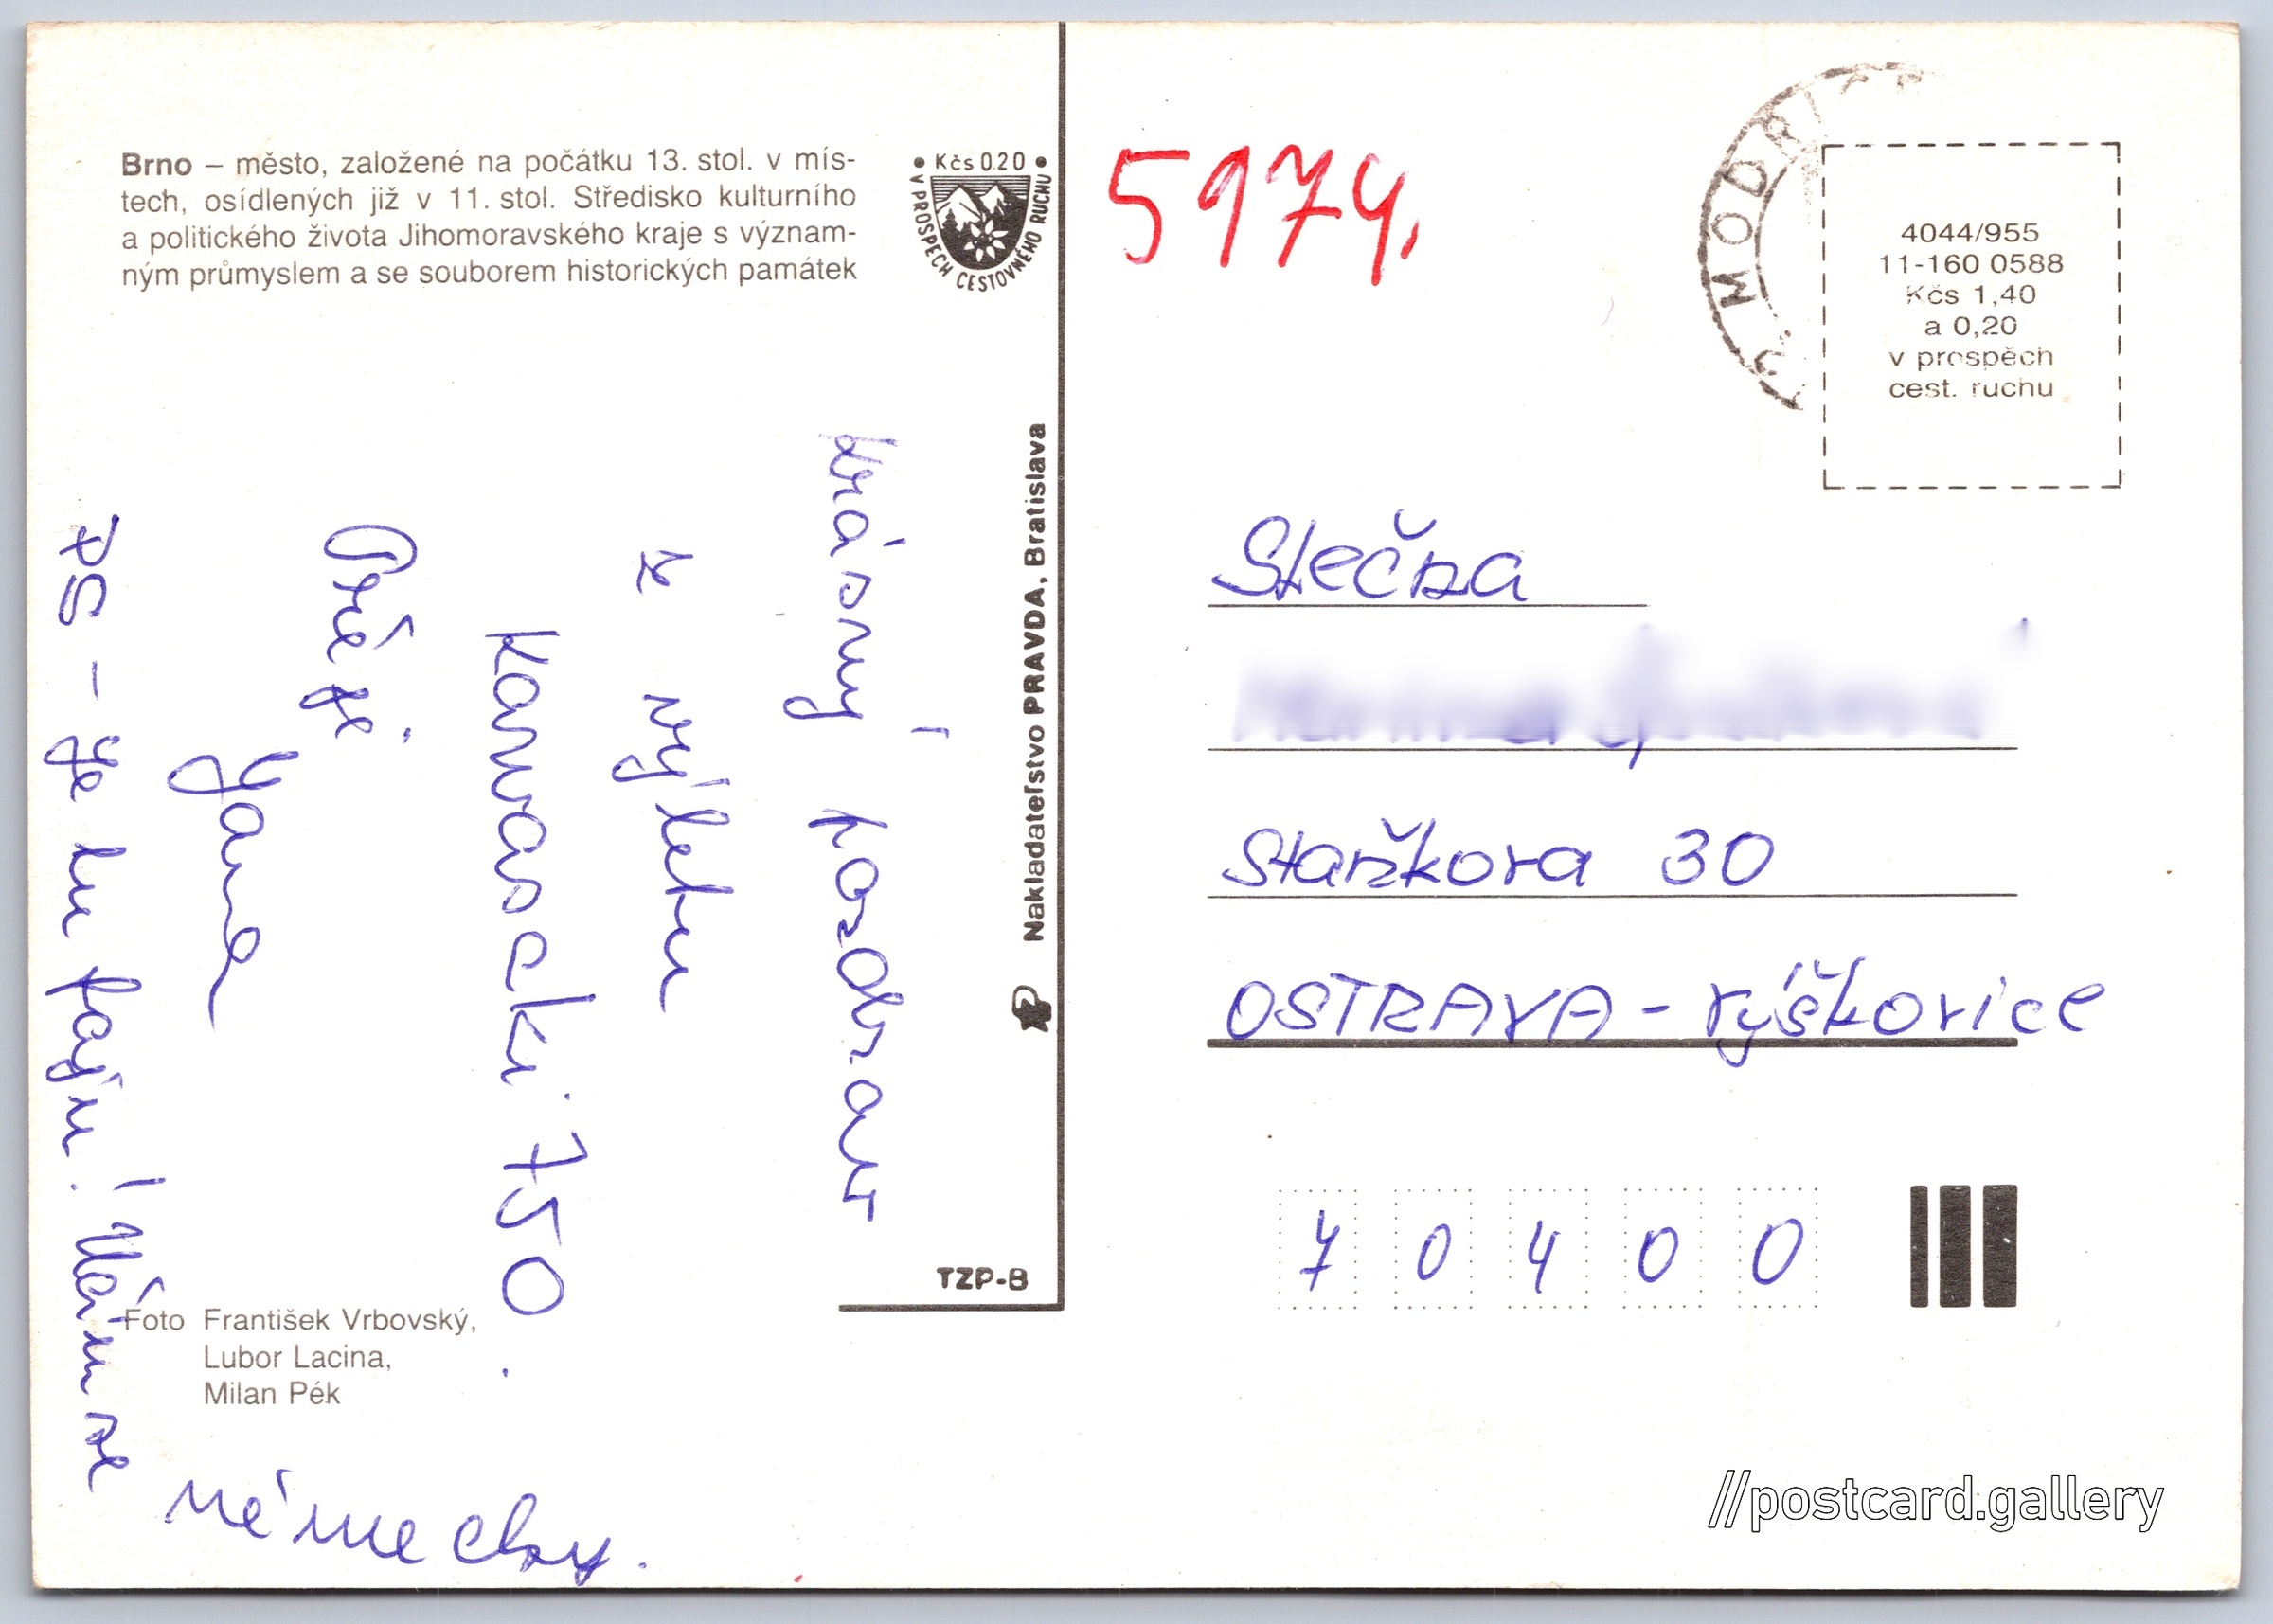 Brno – město, založené na počátku 13. stol. v mís-
tech, osídlených již v 11. stol. Středisko kulturního
a politického života Jihomoravského kraje s význam-
ným průmyslem a se souborem historických památek
• Kčs 0.20 •
V PROSPĚCH CESTOVNÉHO RUCHU
5974.
MODŘI
4044/955
11-160 0588
Kčs 1,40
a 0,20
v prospěch
cest. ruchu
Krásný pozdrav
z výletu
Kawasaki 750.
Jana
PS - je tu fajn!
Foto František Vrbovský,
Lubor Lacina,
Milan Pék
Nakladateľstvo PRAVDA, Bratislava
TZP-8
Slečna
Staňkova 30
OSTRAVA - Výškovice
70400
//postcard.gallery